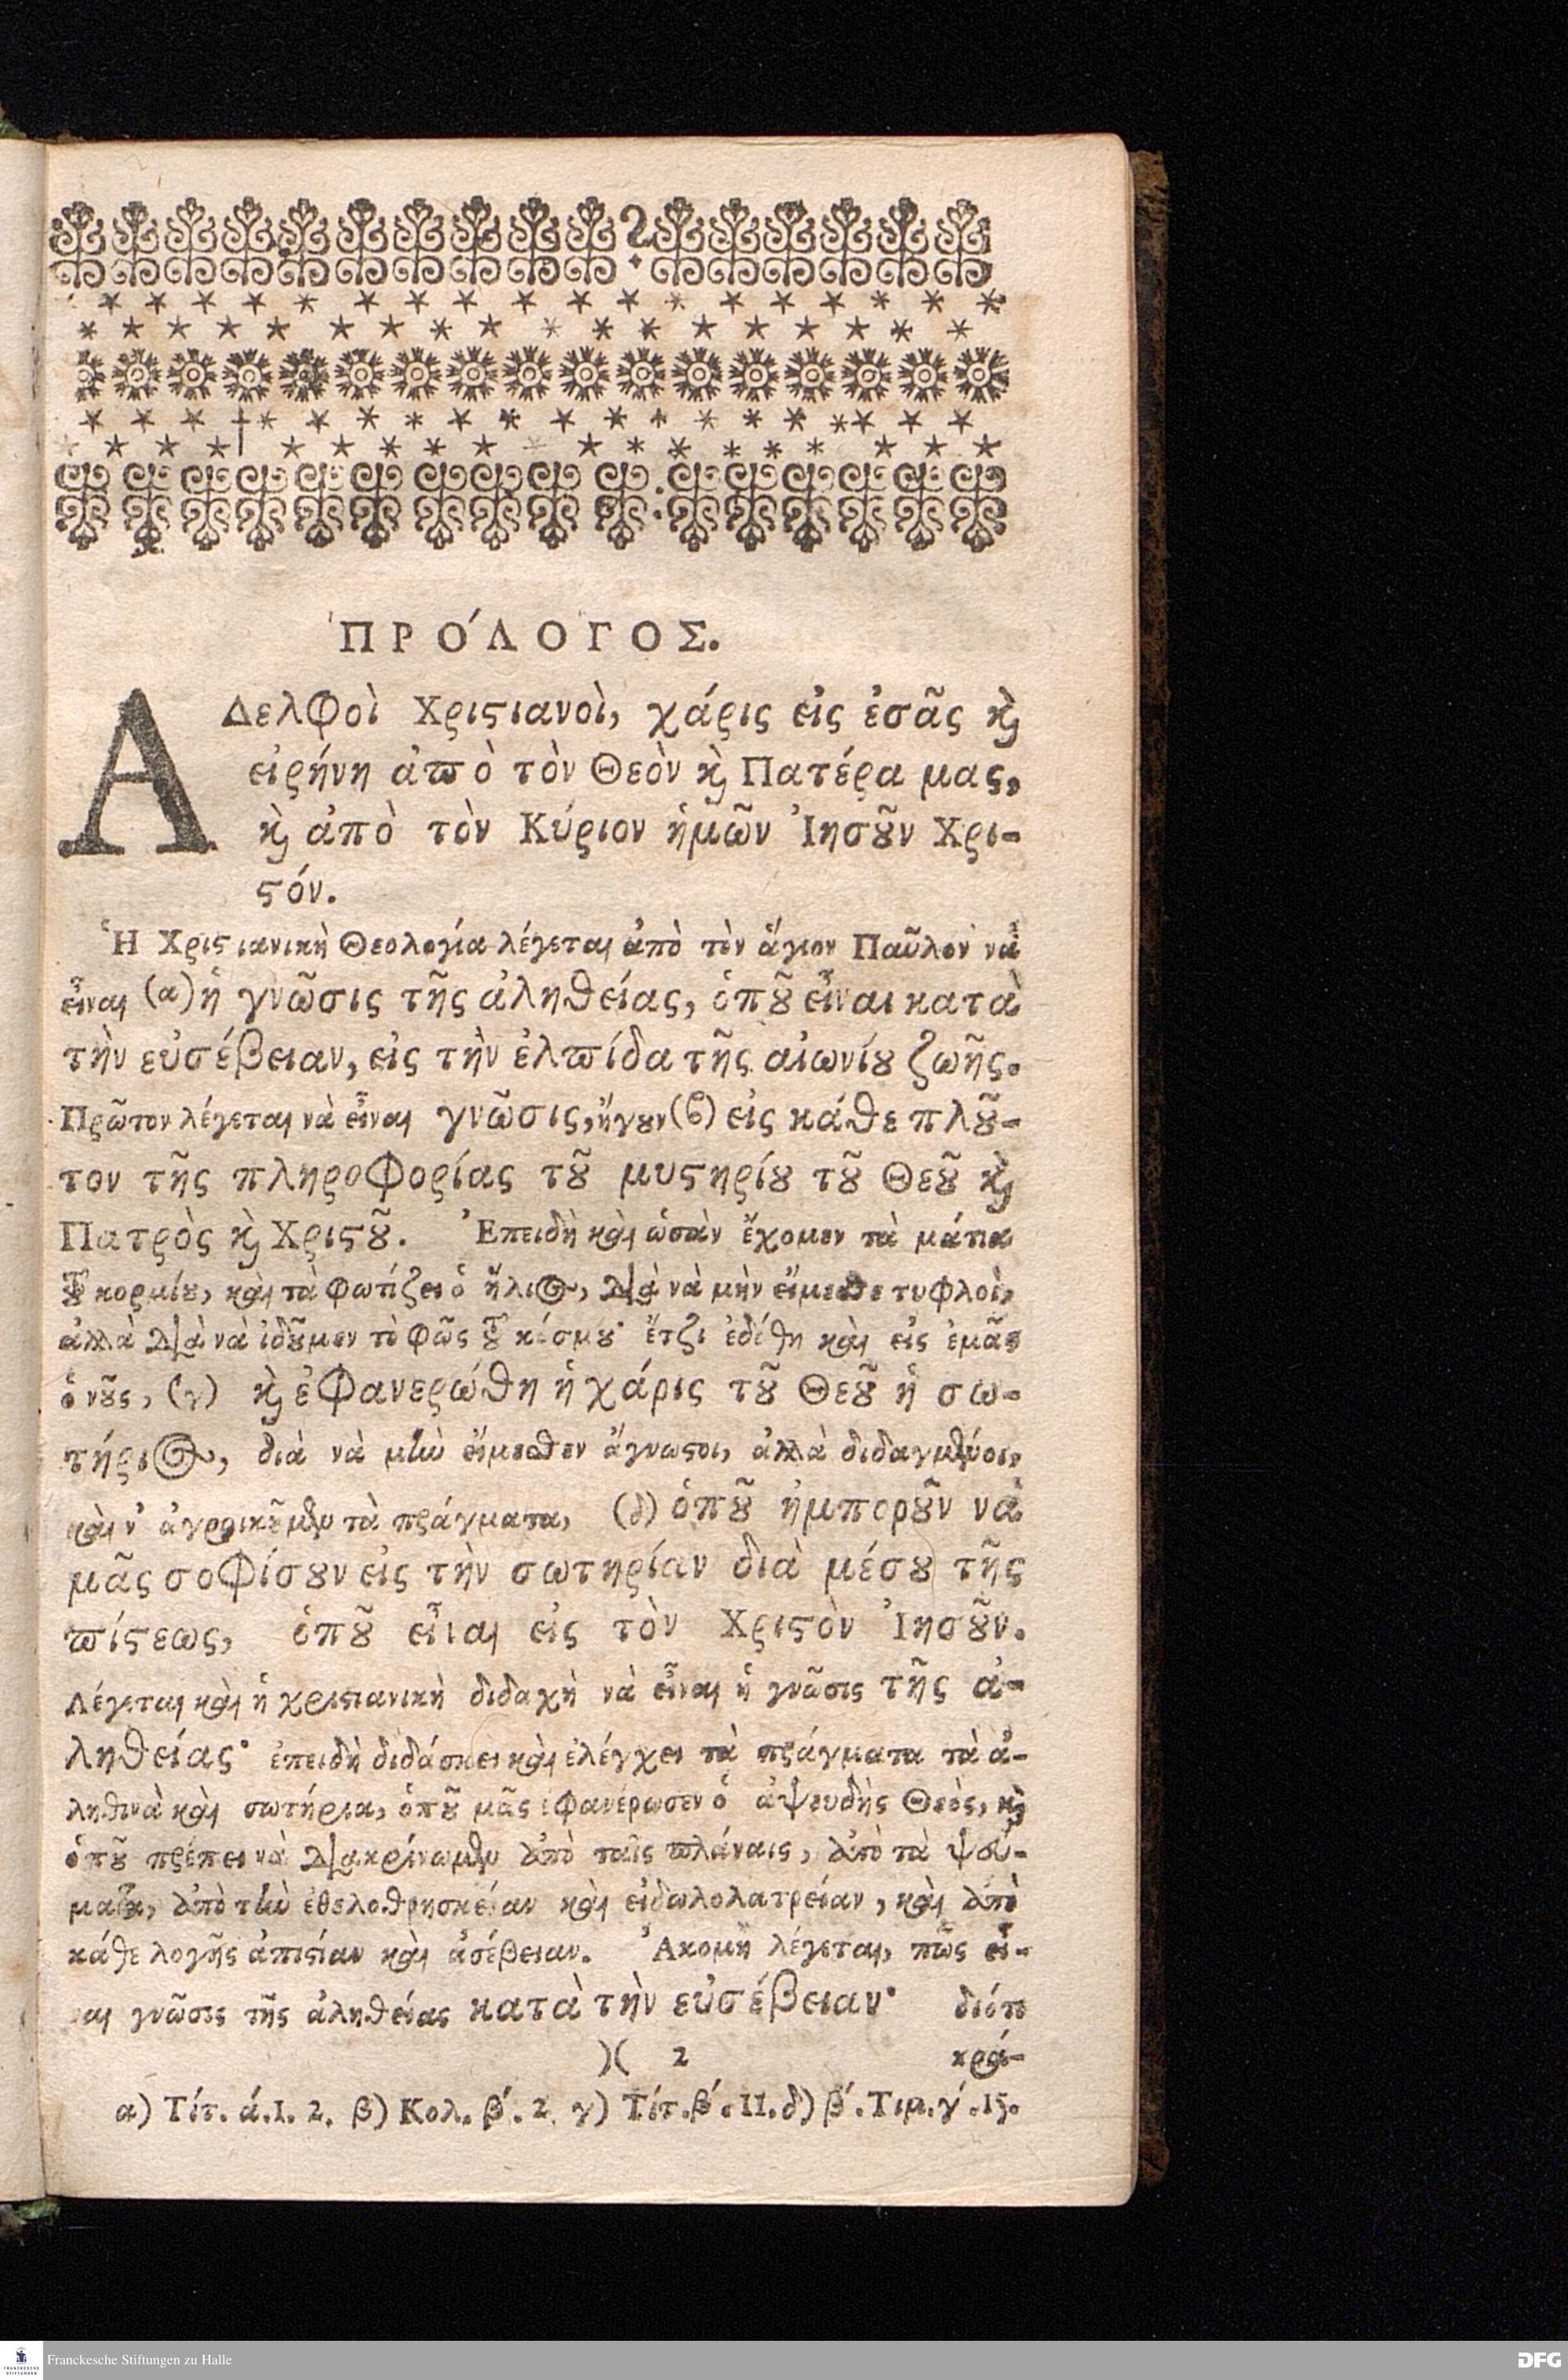 ΠΡΟ´ΛΟΓΟΣ.
ΑΔελφοὶ Χριϛιανοὶ, χάρις εἰς ἐσᾶς ϗ̀
εἰρήνη ἀπὸ τὸν Θεὸν ϗ̀ Πατέρα μας,
ϗ̀ ἀπὸ τὸν Κύριον ἡμῶν Ἰησȣ͂ν Χρι-
ϛόν.
Ἡ Χριϛιανικὴ Θεολογία λέγεται ἀπὸ τὸν ἅγιον Παῦλον νὰ
εἶναι (α) ἡ γνῶσις τῆς ἀληθείας, ὁπȣ͂ εἶναι κατὰ
τὴν εὐσέβειαν, εἰς τὴν ἐλπίδα τῆς αἰωνίȣ ζωῆς.
Πρῶτον λέγεται νὰ εἶναι γνῶσις, ἤγȣν (β) εἰς κάθε πλȣ͂-
τον τῆς πληροφορίας τȣ͂ μυϛηρίȣ τȣ͂ Θεȣ͂ ϗ̀
Πατρὸς ϗ̀ Χριϛȣ͂. Ἐπειδὴ καὶ ὡσὰν ἔχομεν τὰ μάτια
τȣ͂ κορμίȣ, καὶ τὰ φωτίζει ὁ ἥλιος, διὰ νὰ μὴν εἴμεσθε τυφλοὶ,
ἀλλὰ διὰ νὰ ἰδȣ͂μεν τὸ φῶς τȣ͂ κόσμȣ· ἔτζι ἐδόθη καὶ εἰς ἐμᾶς
ὁ νȣ͂ς, (γ) ϗ̀ ἐφανερώθη ἡ χάρις τȣ͂ Θεȣ͂ ἡ σω-
τήριος, διὰ νὰ μὴν εἴμεσθεν ἄγνωϛοι, ἀλλὰ διδαγμένοι,
καὶ ν' ἀγροικȣ͂μεν τὰ πράγματα, (δ) ὁπȣ͂ ἠμπορȣ͂ν νὰ
μᾶς σοφίσȣν εἰς τὴν σωτηρίαν διὰ μέσȣ τῆς
πίϛεως, ὁπȣ͂ εἶναι εἰς τὸν Χριϛὸν Ἰησȣ͂ν.
Λέγεται καὶ ἡ χριϛιανικὴ διδαχὴ νὰ εἶναι ἡ γνῶσις τῆς ἀ-
ληθείας· ἐπειδὴ διδάσκει καὶ ἐλέγχει τὰ πράγματα τὰ ἀ-
ληθινὰ καὶ σωτήρια, ὁπȣ͂ μᾶς ἐφανέρωσεν ὁ ἀψευδὴς Θεὸς, ϗ̀
ὁπȣ͂ πρέπει νὰ διακρίνωμεν ἀπὸ ταῖς πλάναις, ἀπὸ τὰ ψεύ-
ματα, ἀπὸ τὴν ἐθελοθρησκείαν καὶ εἰδωλολατρείαν, καὶ ἀπὸ
κάθε λογῆς ἀπιϛίαν καὶ ἀσέβειαν. Ἀκομὴ λέγεται, πῶς εἶ-
ναι γνῶσις τῆς ἀληθείας κατὰ τὴν εὐσέβειαν· διότι
)( 2 κρά-
α) Τίτ. ά.1. 2. β) Κολ. β´. 2. γ) Τίτ. β´. 11. δ) β´. Τιμ. γ´. 15.
Franckesche Stiftungen zu Halle
DFG